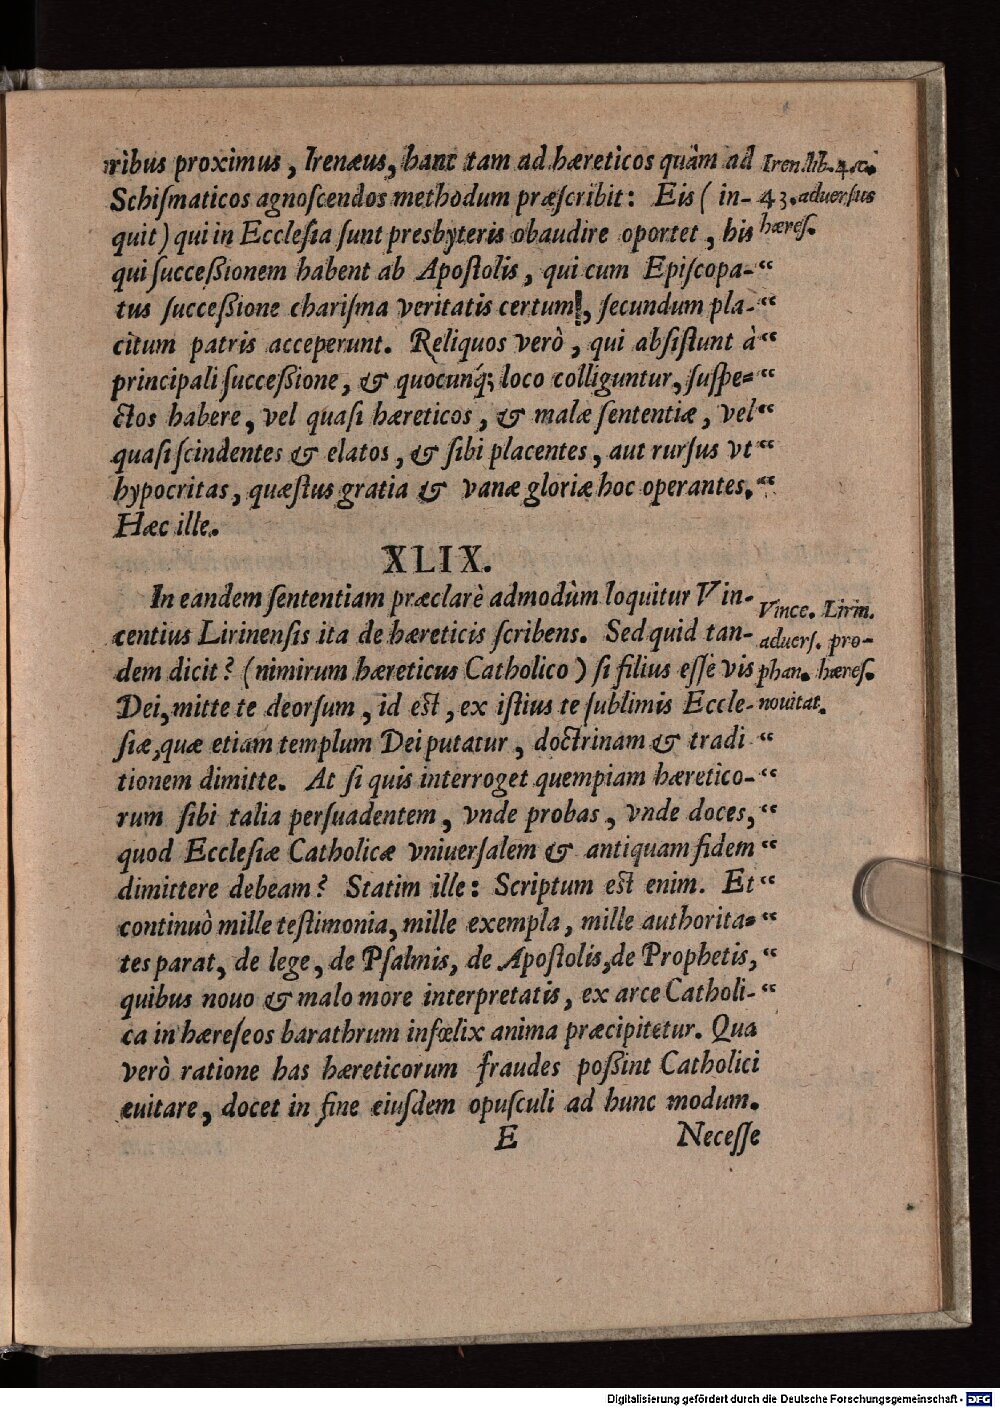 ribus proximus, Irenæus, hanc tam ad hæreticos quàm ad
Schiſmaticos agnoſcendos methodum præſcribit: Eis (in-
quit) qui in Eccleſia ſunt presbyteris obaudire oportet, his
qui ſucceßionem habent ab Apoſtolis, qui cum Epiſcopa-“
tus ſucceßione chariſma veritatis certum, ſecundum pla-“
citum patris acceperunt. Reliquos verò, qui abſiſtunt à“
principali ſucceßione, & quocunq́; loco colliguntur, ſuſpe-“
ctos habere, vel quaſi hæreticos, & malæ ſententiæ, vel“
quaſi ſcindentes & elatos, & ſibi placentes, aut rurſus vt“
hypocritas, quæſtus gratia & vanæ gloriæ hoc operantes.“
Hæc ille.
Iren. lib. 4. c.
43. aduerſus
hæreſ.
XLIX.
In eandem ſententiam præclarè admodùm loquitur Vin-
centius Lirinenſis ita de hæreticis ſcribens. Sed quid tan-
dem dicit? (nimirum hæreticus Catholico) ſi filius eſſe vis
Dei, mitte te deorſum, id est, ex iſtius te ſublimis Eccle-
ſiæ, quæ etiam templum Dei putatur, doctrinam & tradi“
tionem dimitte. At ſi quis interroget quempiam hæretico-“
rum ſibi talia perſuadentem, vnde probas, vnde doces,“
quod Eccleſiæ Catholicæ vniuerſalem & antiquam fidem“
dimittere debeam? Statim ille: Scriptum est enim. Et“
continuò mille teſtimonia, mille exempla, mille authorita-“
tes parat, de lege, de Pſalmis, de Apoſtolis, de Prophetis,“
quibus nouo & malo more interpretatis, ex arce Catholi-“
ca in hæreſeos barathrum infœlix anima præcipitetur. Qua
verò ratione has hæreticorum fraudes poßint Catholici
euitare, docet in fine eiuſdem opuſculi ad hunc modum.
Vince. Lirin.
aduerſ. pro-
phan. hæreſ.
nouitat.
E Neceſſe
Digitalisierung gefördert durch die Deutsche Forschungsgemeinschaft - DFG